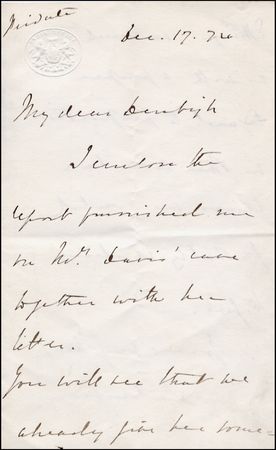 Private
Dec. 17. 74
My dear Denbigh
I enclose the
report furnished me
on Mrs. Davis' case
together with her
letter.
You will see that we
already give her some=